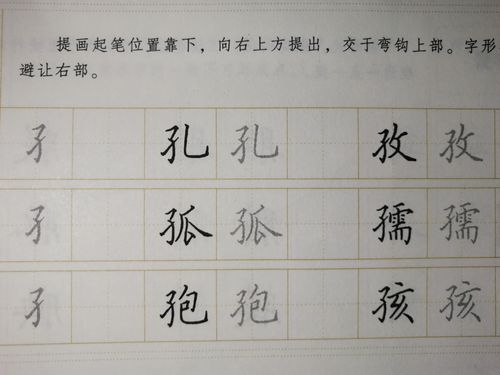 提画起笔位置靠下，向右上方提出，交于弯钩上部。字形
避让右部。
孑 孔 孔 孜 孜
孑 孤 孤 孺 孺
孑 孢 孢 孩 孩